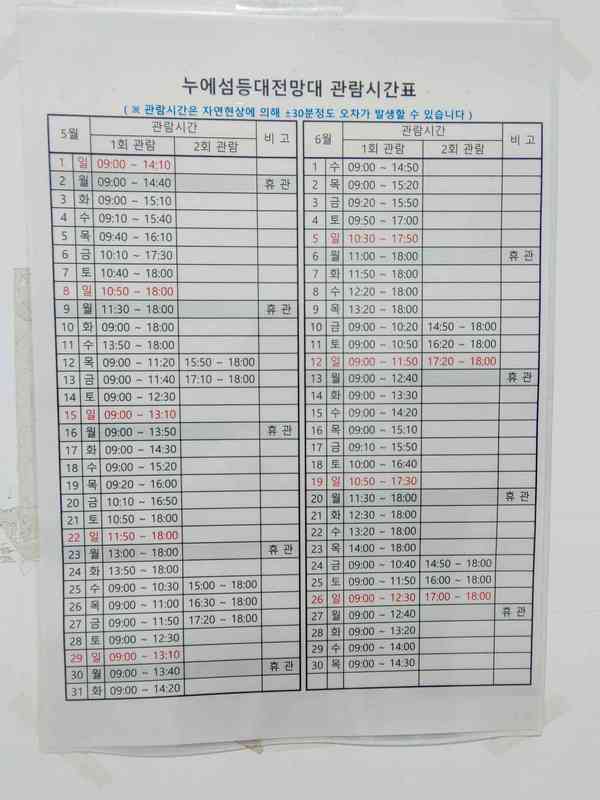 누에섬등대전망대 관람시간표
( ※ 관람시간은 자연현상에 의해 ±30분정도 오차가 발생할 수 있습니다 )
5월 관람시간 비 고
1회 관람 2회 관람
1 일 09:00 ~ 14:10
2 월 09:00 ~ 14:40 휴 관
3 화 09:00 ~ 15:10
4 수 09:10 ~ 15:40
5 목 09:40 ~ 16:10
6 금 10:10 ~ 17:30
7 토 10:40 ~ 18:00
8 일 10:50 ~ 18:00
9 월 11:30 ~ 18:00 휴 관
10 화 09:00 ~ 18:00
11 수 13:50 ~ 18:00
12 목 09:00 ~ 11:20 15:50 ~ 18:00
13 금 09:00 ~ 11:40 17:10 ~ 18:00
14 토 09:00 ~ 12:30
15 일 09:00 ~ 13:10
16 월 09:00 ~ 13:50 휴 관
17 화 09:00 ~ 14:30
18 수 09:00 ~ 15:20
19 목 09:20 ~ 16:00
20 금 10:10 ~ 16:50
21 토 10:50 ~ 18:00
22 일 11:50 ~ 18:00
23 월 13:00 ~ 18:00 휴 관
24 화 13:50 ~ 18:00
25 수 09:00 ~ 10:30 15:00 ~ 18:00
26 목 09:00 ~ 11:00 16:30 ~ 18:00
27 금 09:00 ~ 11:50 17:20 ~ 18:00
28 토 09:00 ~ 12:30
29 일 09:00 ~ 13:10
30 월 09:00 ~ 13:40 휴 관
31 화 09:00 ~ 14:20
6월 관람시간 비 고
1회 관람 2회 관람
1 수 09:00 ~ 14:50
2 목 09:00 ~ 15:20
3 금 09:20 ~ 15:50
4 토 09:50 ~ 17:00
5 일 10:30 ~ 17:50
6 월 11:00 ~ 18:00 휴 관
7 화 11:50 ~ 18:00
8 수 12:20 ~ 18:00
9 목 13:20 ~ 18:00
10 금 09:00 ~ 10:20 14:50 ~ 18:00
11 토 09:00 ~ 10:50 16:20 ~ 18:00
12 일 09:00 ~ 11:50 17:20 ~ 18:00
13 월 09:00 ~ 12:40 휴 관
14 화 09:00 ~ 13:30
15 수 09:00 ~ 14:20
16 목 09:00 ~ 15:10
17 금 09:10 ~ 15:50
18 토 10:00 ~ 16:40
19 일 10:50 ~ 17:30
20 월 11:30 ~ 18:00 휴 관
21 화 12:30 ~ 18:00
22 수 13:20 ~ 18:00
23 목 14:00 ~ 18:00
24 금 09:00 ~ 10:40 14:50 ~ 18:00
25 토 09:00 ~ 11:50 16:00 ~ 18:00
26 일 09:00 ~ 12:30 17:00 ~ 18:00
27 월 09:00 ~ 12:40 휴 관
28 화 09:00 ~ 13:20
29 수 09:00 ~ 14:00
30 목 09:00 ~ 14:30